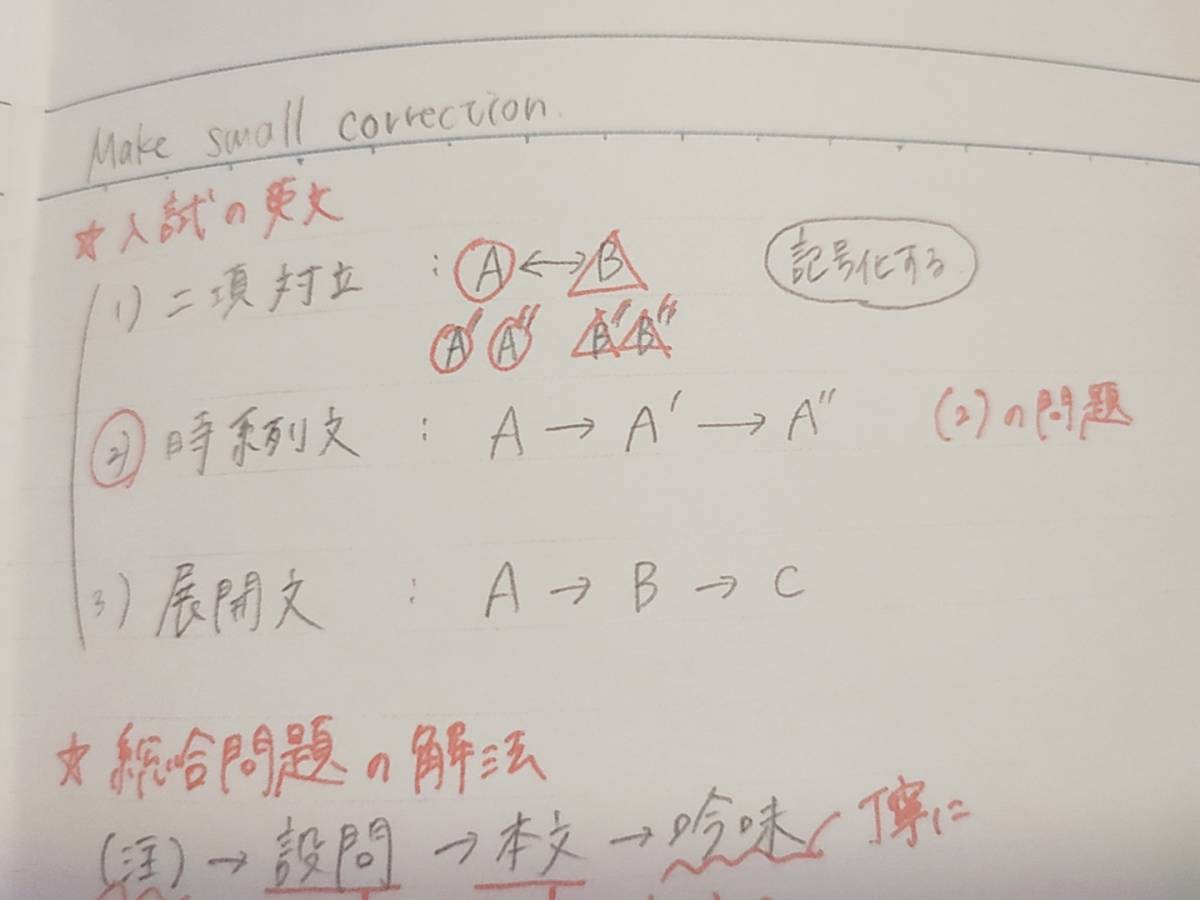 Make small correction.
★入試の英文
(1) 二項対立 : A ↔ B 記号化する
A' A" B' B"
(2) 時系列文 : A → A' → A" (2)の問題
(3) 展開文 : A → B → C
★総合問題の解法
(注) → 設問 → 本文 → 吟味 丁寧に